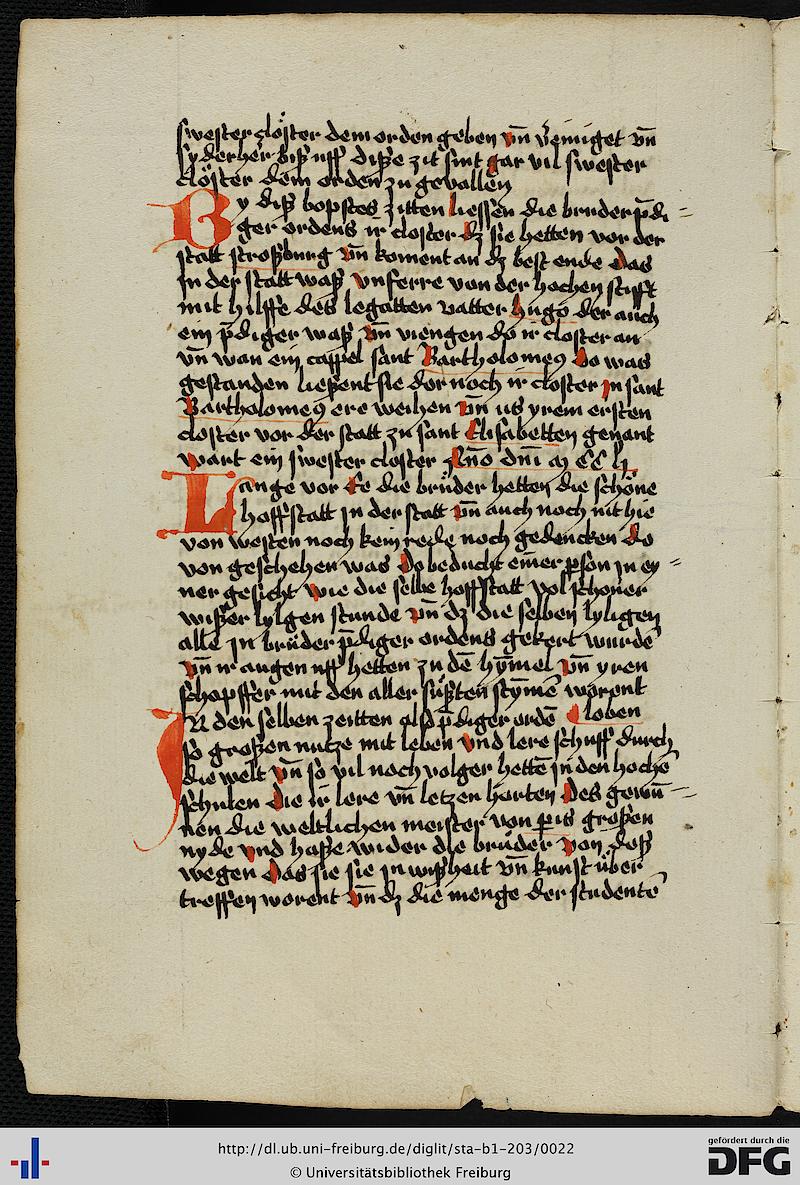 swester clöster dem orden geben vn̄ v̄einiget vn̄
sy der her biß uff diße zit sint gar vil swester
clöster dem orden zu gevallen
By diß bopstes zitten liessen die bruder p̄di=
ger ordens ir closter dz sie hetten vor der
statt stroßburg vn̄ koment an dz best ende das
in der statt waß vnferre von der hochen stifft
mit hilffe des legatten vatter hugo der auch
ein p̄diger waß vn̄ viengen do ir closter an
vn̄ wan ein cappel sant Bartholomeꝰ do was
gestanden ließent sie dor noch ir closter in sant
Bartholomeꝰ ere weihen vn̄ us yrem ersten
closter vor der statt zu sant Elisabetten genant
wart ein swester closter An̄o dn̄i m cc li
Lange vor Ee die brüder hetten die schöne
hoffstatt jn der statt vn̄ auch noch nit hie
von westen noch kein rede noch gedencken do
von geschehen was do beducht einer p̱son jn ey=
ner gesicht wie die selbe hoffstatt vol schoner
wißer lylgen stunde vn̄ dz die selben lyligen
alle jn brüder p̄diger ordens gekert wurdē
vn̄ ir augen uff hetten zu dē hȳmel vn̄ yren
schopffer mit den aller süßten stȳmē worent
JN den selben zeitten also p̄diger ordē loben
so großen nutze mit leben vnd lere schuff durch
die welt vn̄ so vil nochvolger hettē jn den hochē
schulen die ir lere vn̄ letzen horten des gewū=
nen die weltlichen meister von p̱is großen
nyde vnd haße wider die brüder von doß
wegen das sie sie jn wißheit vn̄ kunst über
treffen worent vn̄ dz die menge der studentē
http://dl.ub.uni-freiburg.de/diglit/sta-b1-203/0022
© Universitätsbibliothek Freiburg
gefördert durch die
DFG